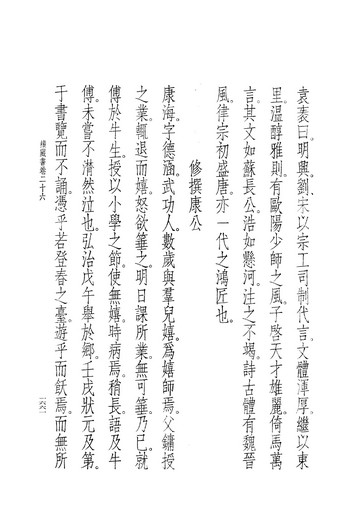 袁袠曰。明興。劉宋以宗工司制代言。文體渾厚。繼以東
里。溫醇雅則。有歐陽少師之風。子啓天才雄麗。倚馬萬
言。其文如蘇長公。浩如懸河。注之不竭。詩古體有魏晉
風。律宗初盛唐。亦一代之鴻匠也。
修撰康公
康海。字德涵。武功人。數歲與羣兒嬉。爲嬉師焉。父鏞授
之業。輒退而嬉。怒欲箠之。明日課所業。無可箠乃已。就
傅於牛生。授以小學之節。使無嬉。時病焉。稍長。語及牛
傅。未嘗不潸然泣也。弘治戊午。舉於鄉。壬戌狀元及第。
于書覽而不誦。憑乎若登春之臺。遊乎而飫焉。而無所
續藏書卷二十六